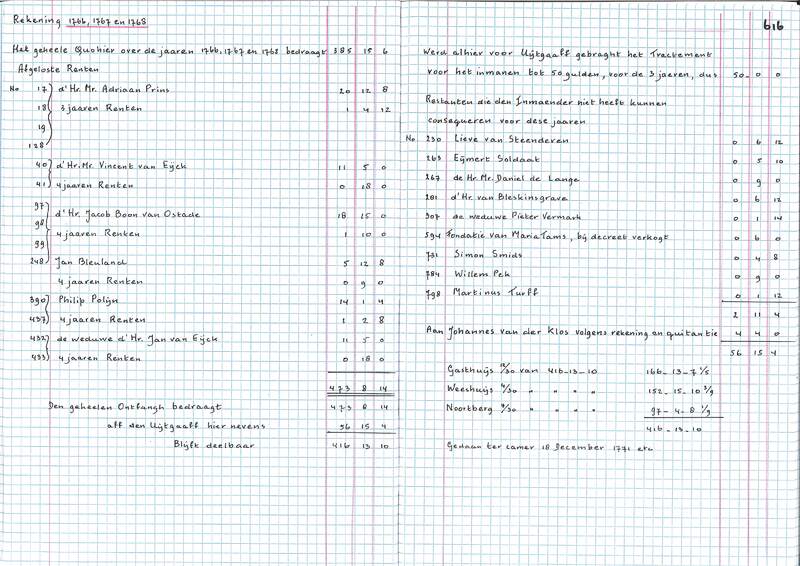 Rekening 1766, 1767 en 1768
Het geheele Quohier over de jaaren 1766, 1767 en 1768 bedraagt 385 15 6
Afgeloste Renten
No 17 d'Hr. Mr. Adriaan Prins 20 12 8
18 3 jaaren Renten 1 4 12
19
128
40 d'Hr. Mr. Vincent van Eijck 11 5 0
41 4 jaaren Renten 0 18 0
97
d'Hr. Jacob Boon van Ostade 18 15 0
98
4 jaaren Renten 1 10 0
99
248 Jan Bleuland 5 12 8
4 jaaren Renten 0 9 0
390 Philip Polijn 14 1 4
437 4 jaaren Renten 1 2 8
432 de weduwe d'Hr. Jan van Eijck 11 5 0
433 4 jaaren Renten 0 18 0
473 8 14
Den geheelen Ontfangh bedraagt 473 8 14
aff den Uijtgaaff hier nevens 56 15 4
Blijft deelbaar 416 13 10
616
Werd alhier voor Uijtgaaff gebraght het Tractement
voor het inmanen tot 50 gulden, voor de 3 jaeren, dus 50 - 0 - 0
Restanten die den Inmaender niet heeft kunnen
consequeren voor dese jaaren
No 230 Lieve van Steenderen 0 6 12
263 Eijmert Soldaat 0 5 10
267 de Hr. Mr. Daniel de Lange 0 9 0
281 d'Hr. van Bleskinsgrave 0 6 12
307 de weduwe Pieter Vermark 0 1 14
594 Fondatie van Maria Tams, bij decreet verkogt 0 6 0
731 Simon Smids 0 4 8
784 Willem Pek 0 9 0
798 Martinus Turff 0 1 12
2 11 4
Aan Johannes van der Klos volgens rekening en quitantie 4 4 0
56 15 4
Gasthuijs 12/30 van 416-13-10 166-13-7 1/5
Weeshuijs " " " " 152-15-10 3/9
Noortberg " " " " 97-4-8 1/9
416-13-10
Gedaan ter camer 18 December 1771 etc